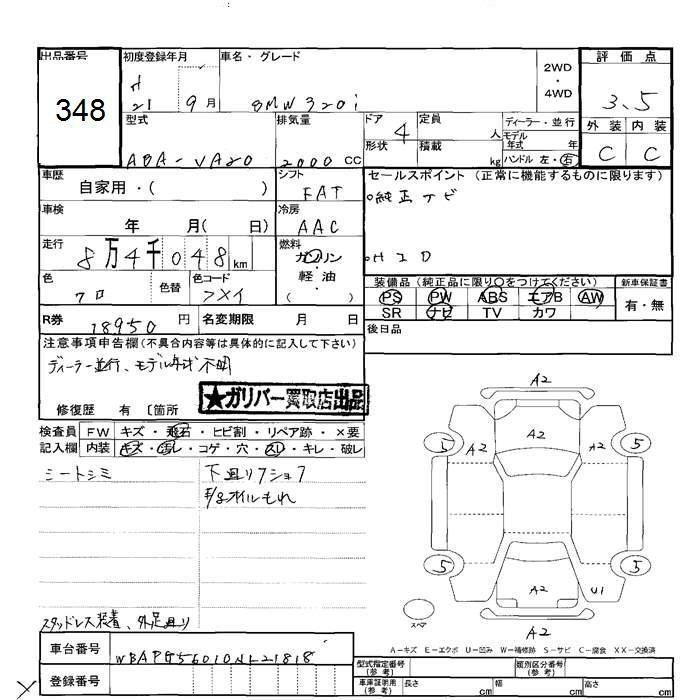 出品番号 初度登録年月 車名・グレード 2WD・4WD 評価点
348
H21 9月 BMW 320i 3.5
型式 排気量 ドア 4 定員 人 ディーラー・並行 外装 内装
モデル年式 年
ABA-VA20 2000 CC 形状 積載 kg ハンドル 左・右 C C
車歴 シフト セールスポイント (正常に機能するものに限ります)
自家用・( ) FAT ○純正ナビ
車検 冷房
年 月( 日) AAC
走行 燃料
8万4千048 km ガソリン・軽油 ○HID
色 色替 色コード ( ) 装備品 (純正品に限り○をつけてください) 新車保証書
クロ PS PW ABS エアB AW 有・無
SR ナビ TV カワ
R券 18950 円 名変期限 月 日 後日品
注意事項申告欄(不具合内容等は具体的に記入して下さい)
ディーラー並行、モデル年式不明
★ガリバー買取店出品
修復歴 有 〔箇所
検査員 FW キズ・飛石・ヒビ割・リペア跡・×要
記入欄 内装 キズ・汚レ・コゲ・穴・スレ・キレ・破レ
シートシミ 下廻りフショク
オイルもれ
A2
5 A2 A2 A2 5
5 A2 U1 5
スペア A2
スタッドレス装着、外足廻り
A-キズ E-エクボ U-凹み W-補修跡 S-サビ C-腐食 XX-交換済
車台番号 WBAPG56010NL21818
型式指定番号(参考) 類別区分番号(参考)
登録番号 車庫証明用(参考) 長さ cm 幅 cm 高さ cm